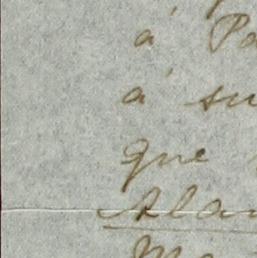 á Pa
á su
que
Alan
Ma